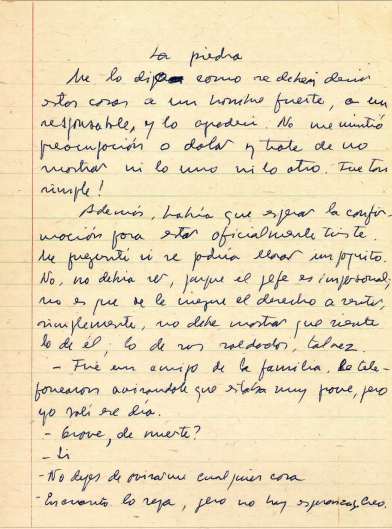 La piedra
Me lo dijo como se deben decir
estas cosas a un hombre fuerte, a un
responsable, y lo agradecí. No me mintió
preocupación o dolor y traté de no
mostrar ni lo uno ni lo otro. Fue tan
simple!
Además, había que esperar la confir-
mación para estar oficialmente triste.
Me pregunté si se podría llorar un poquito.
No, no debía ser, porque el jefe es impersonal;
no es que se le niegue el derecho a sentir,
simplemente, no debe mostrar que siente
lo de él; lo de sus soldados, tal vez.
- Fue un amigo de la familia, le tele-
fonearon avisándole que estaba muy grave, pero
yo salí ese día.
- Grave, de muerte?
- Si
- No dejes de avisarme cualquier cosa
- En cuanto lo sepa, pero no hay esperanzas, creo.